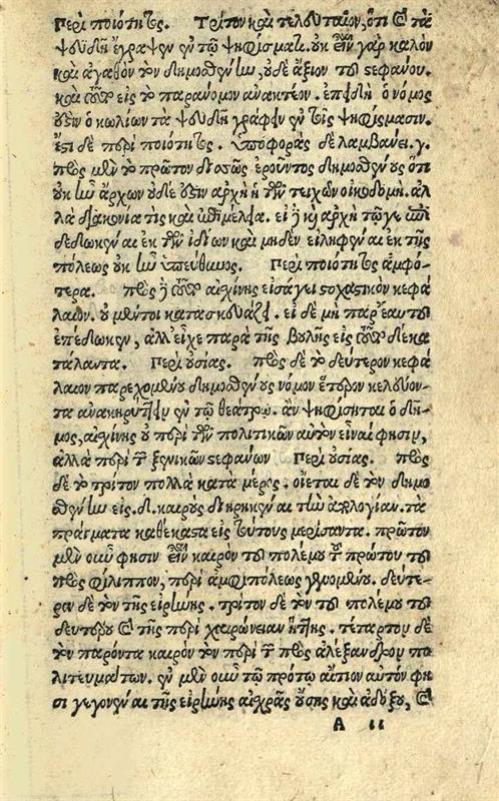 περὶ ποιότητος. Τρίτον καὶ τελευταῖον, ὅτι καὶ τὰ
ψευδῆ ἔγραψεν ἐν τῷ ψηφίσματι. οὐκ εἶναι γὰρ καλὸν
καὶ ἀγαθὸν τὸν δημοσθένην, οὐδὲ ἄξιον τοῦ στεφάνου.
καὶ τοῦτο εἰς τὸ παράνομον ἀνακτέον. ἐπειδὴ ὁ νόμος
ἐστὶν ὁ κωλύων τὰ ψευδῆ γράφειν ἐν τοῖς ψηφίσμασιν.
ἔστι δὲ περὶ ποιότητος. ὑποφορὰς δὲ λαμβάνει. γ.
πρὸς μὲν τὸ πρῶτον διττῶς ἐροῦντος δημοσθένους ὅτι
οὐκ ἦν ἄρχων οὐδέ ἐστιν ἀρχὴ ἡ τῶν τειχῶν οἰκοδομὴ. ἀλ
λὰ διακονία τις καὶ ἐπιμέλεια. εἰ δὲ καὶ ἀρχὴ τῷ γε ἐπι
δεδωκέναι ἐκ τῶν ἰδίων καὶ μηδὲν εἰληφέναι ἐκ τῆς
πόλεως οὐκ ἦν ὑπεύθυνος. Περὶ ποιότητος ἀμφό-
τερα. πρὸς δὲ τοῦτο αἰσχίνης εἰσάγει στοχαστικὸν κεφά
λαιον. οὐ μέντοι κατασκευάζει. εἰ δὲ μὴ παρ' ἑαυτοῦ
ἐπέδωκεν, ἀλλ' εἶχε παρὰ τῆς βουλῆς εἰς τοῦτο δέκα
τάλαντα. Περὶ οὐσίας. πρὸς δὲ τὸ δεύτερον κεφά
λαιον παρεχομένου δημοσθένους νόμον ἕτερον κελεύον-
τα ἀνακηρύττειν ἐν τῷ θεάτρῳ. ἂν ψηφίσηται ὁ δῆ-
μος, αἰσχίνης οὐ περὶ τῶν πολιτικῶν αὐτὸν εἶναί φησιν,
ἀλλὰ περὶ τῶν ξενικῶν στεφάνων Περὶ οὐσίας. πρὸς
δὲ τὸ τρίτον πολλὰ κατὰ μέρος. οἴεται δὲ τὸν δημο
σθένην εἰς. δ. καιροὺς διῃρηκέναι τὴν ἀπολογίαν. τὰ
πράγματα καθ' ἕκαστα εἰς τούτους μερίσαντα. πρῶτον
μὲν οὖν φησιν εἶναι καιρὸν τοῦ πολέμου τοῦ πρώτου τοῦ
πρὸς φίλιππον, περὶ ἀμφιπόλεως γενομένου. δεύτε-
ρον δὲ τὸν τῆς εἰρήνης. τρίτον δὲ τὸν τοῦ πολέμου τοῦ
δευτέρου καὶ τῆς περὶ χαιρώνειαν ἥττης. τέταρτον δὲ
τὸν παρόντα καιρὸν τὸν περὶ τῶν πρὸς ἀλέξανδρον πο
λιτευμάτων. ἐν μὲν οὖν τῷ πρώτῳ αἴτιον αὐτόν φη
σι γεγονέναι τῆς εἰρήνης αἰσχρᾶς οὔσης καὶ ἀδόξου, καὶ
A ii